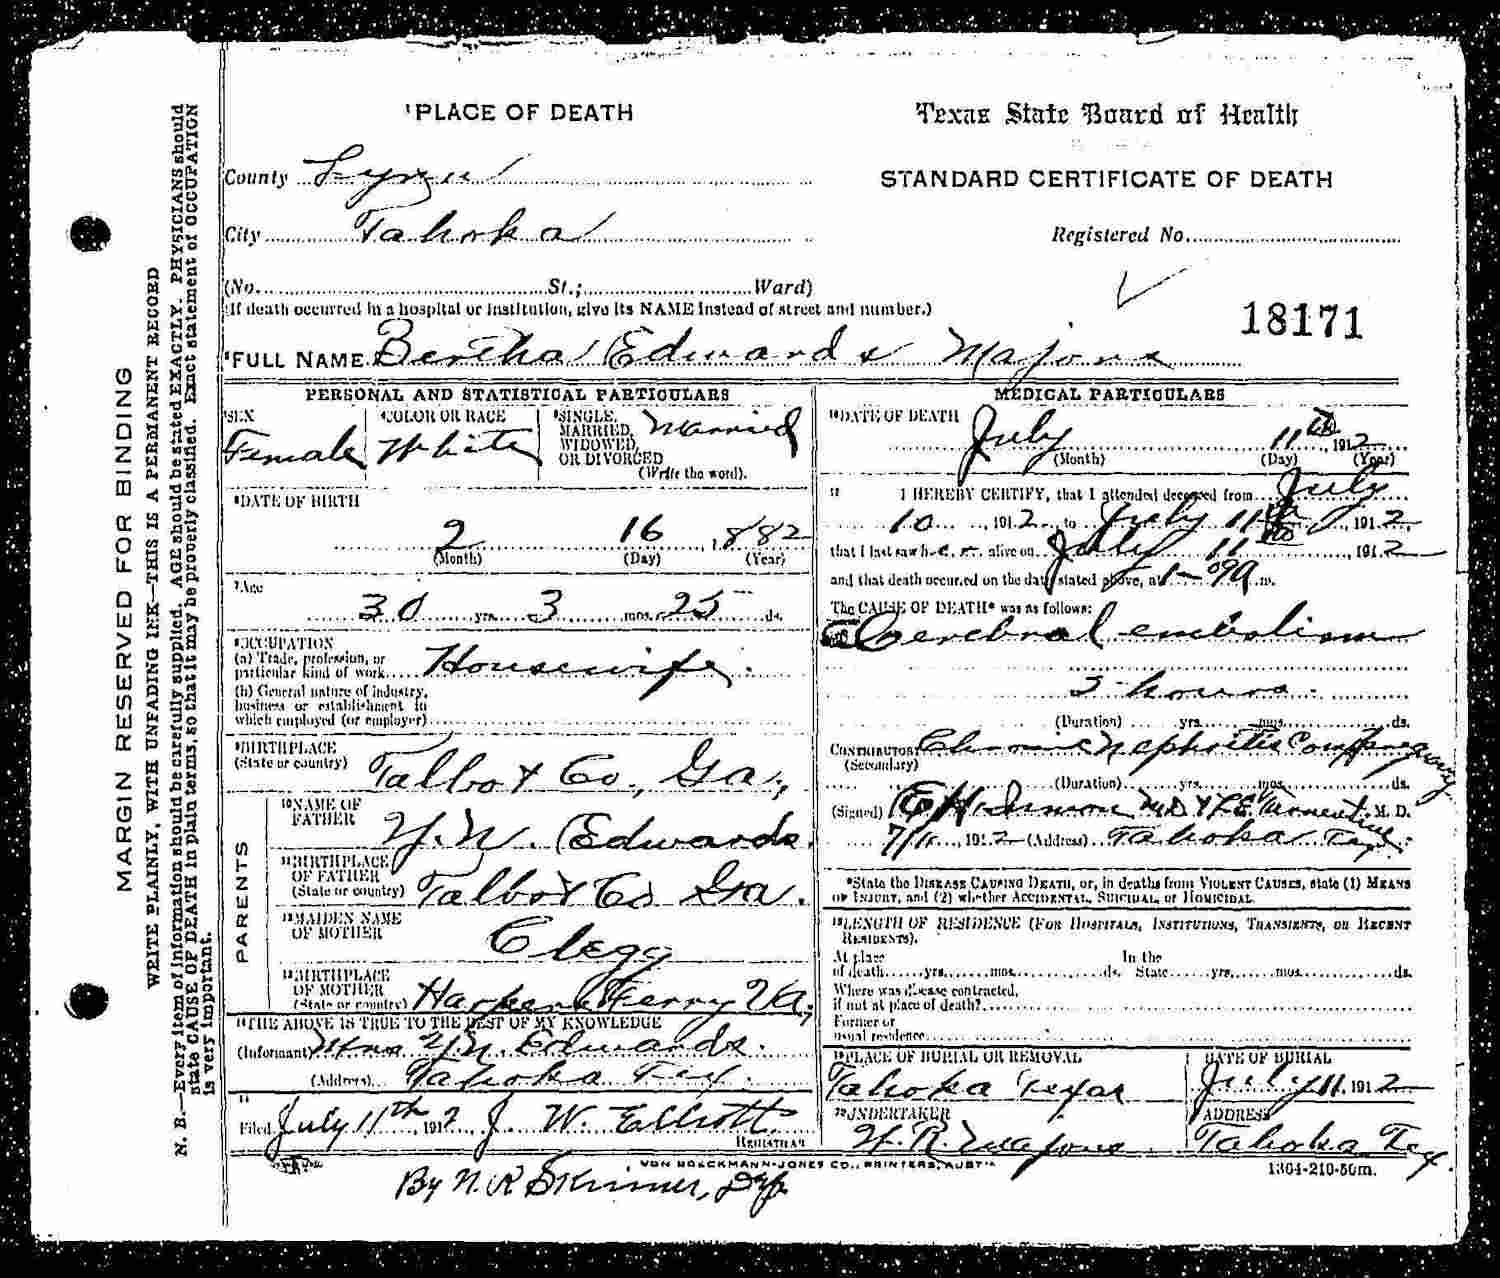 ¹PLACE OF DEATH
County Lynn
City Tahoka
(No. St.; Ward)
(If death occurred in a hospital or institution, give its NAME instead of street and number.)
Texas State Board of Health
STANDARD CERTIFICATE OF DEATH
Registered No.
18171
²FULL NAME Bertha Edwards Majors
PERSONAL AND STATISTICAL PARTICULARS
³SEX
Female
⁴COLOR OR RACE
White
⁵SINGLE,
MARRIED,
WIDOWED,
OR DIVORCED
Married
(Write the word).
⁶DATE OF BIRTH
2 16 , 1882
(Month) (Day) (Year)
⁷Age
30 yrs. 3 mos. 25 ds.
⁸OCCUPATION
(a) Trade, profession, or
particular kind of work Housewife
(b) General nature of industry,
business or establishment in
which employed (or employer)
⁹BIRTHPLACE
(State or country)
Talbot Co, Ga,
PARENTS
¹⁰NAME OF
FATHER
Edwards.
¹¹BIRTHPLACE
OF FATHER
(State or country)
Talbot Co Ga.
¹²MAIDEN NAME
OF MOTHER
Clegg
¹³BIRTHPLACE
OF MOTHER
(State or country)
Harpers Ferry Va,
¹⁴THE ABOVE IS TRUE TO THE BEST OF MY KNOWLEDGE
(Informant) Mrs Edwards.
(Address) Tahoka Tex.
¹⁵
Filed July 11th, 1912 J. W. Elliott
REGISTRAR
By N. R Skinner, Dep
VON BOECKMANN-JONES CO., PRINTERS, AUSTIN
MEDICAL PARTICULARS
¹⁶DATE OF DEATH
July 11th 1912
(Month) (Day) (Year)
¹⁷ I HEREBY CERTIFY, that I attended deceased from July
10, 1912, to July 11th, 1912,
that I last saw her alive on July 11th, 1912
and that death occurred on the date stated above, at m.
The CAUSE OF DEATH* was as follows:
Cerebral embolism
3 hours.
(Duration) yrs. mos. ds.
CONTRIBUTORY Chronic Nephritis Comp Pregnancy
(Secondary)
(Duration) yrs. mos. ds.
(Signed) Inmon M.D. & M. D.
7/11, 1912 (Address) Tahoka Tex.
*State the DISEASE CAUSING DEATH, or, in deaths from VIOLENT CAUSES, state (1) MEANS
OF INJURY, and (2) whether ACCIDENTAL, SUICIDAL, or HOMICIDAL.
¹⁸LENGTH OF RESIDENCE (FOR HOSPITALS, INSTITUTIONS, TRANSIENTS, OR RECENT
RESIDENTS).
At place In the
of death yrs. mos. ds. State yrs. mos. ds.
Where was disease contracted,
if not at place of death?
Former or
usual residence
¹⁹PLACE OF BURIAL OR REMOVAL
Tahoka Texas
DATE OF BURIAL
July 11 1912
²⁰UNDERTAKER
H. R. Majors.
ADDRESS
Tahoka Tex
1364-210-50m.
MARGIN RESERVED FOR BINDING
WRITE PLAINLY, WITH UNFADING INK—THIS IS A PERMANENT RECORD
N. B.—Every item of information should be carefully supplied. AGE should be stated EXACTLY. PHYSICIANS should
state CAUSE OF DEATH in plain terms, so that it may be properly classified. Exact statement of OCCUPATION
is very important.